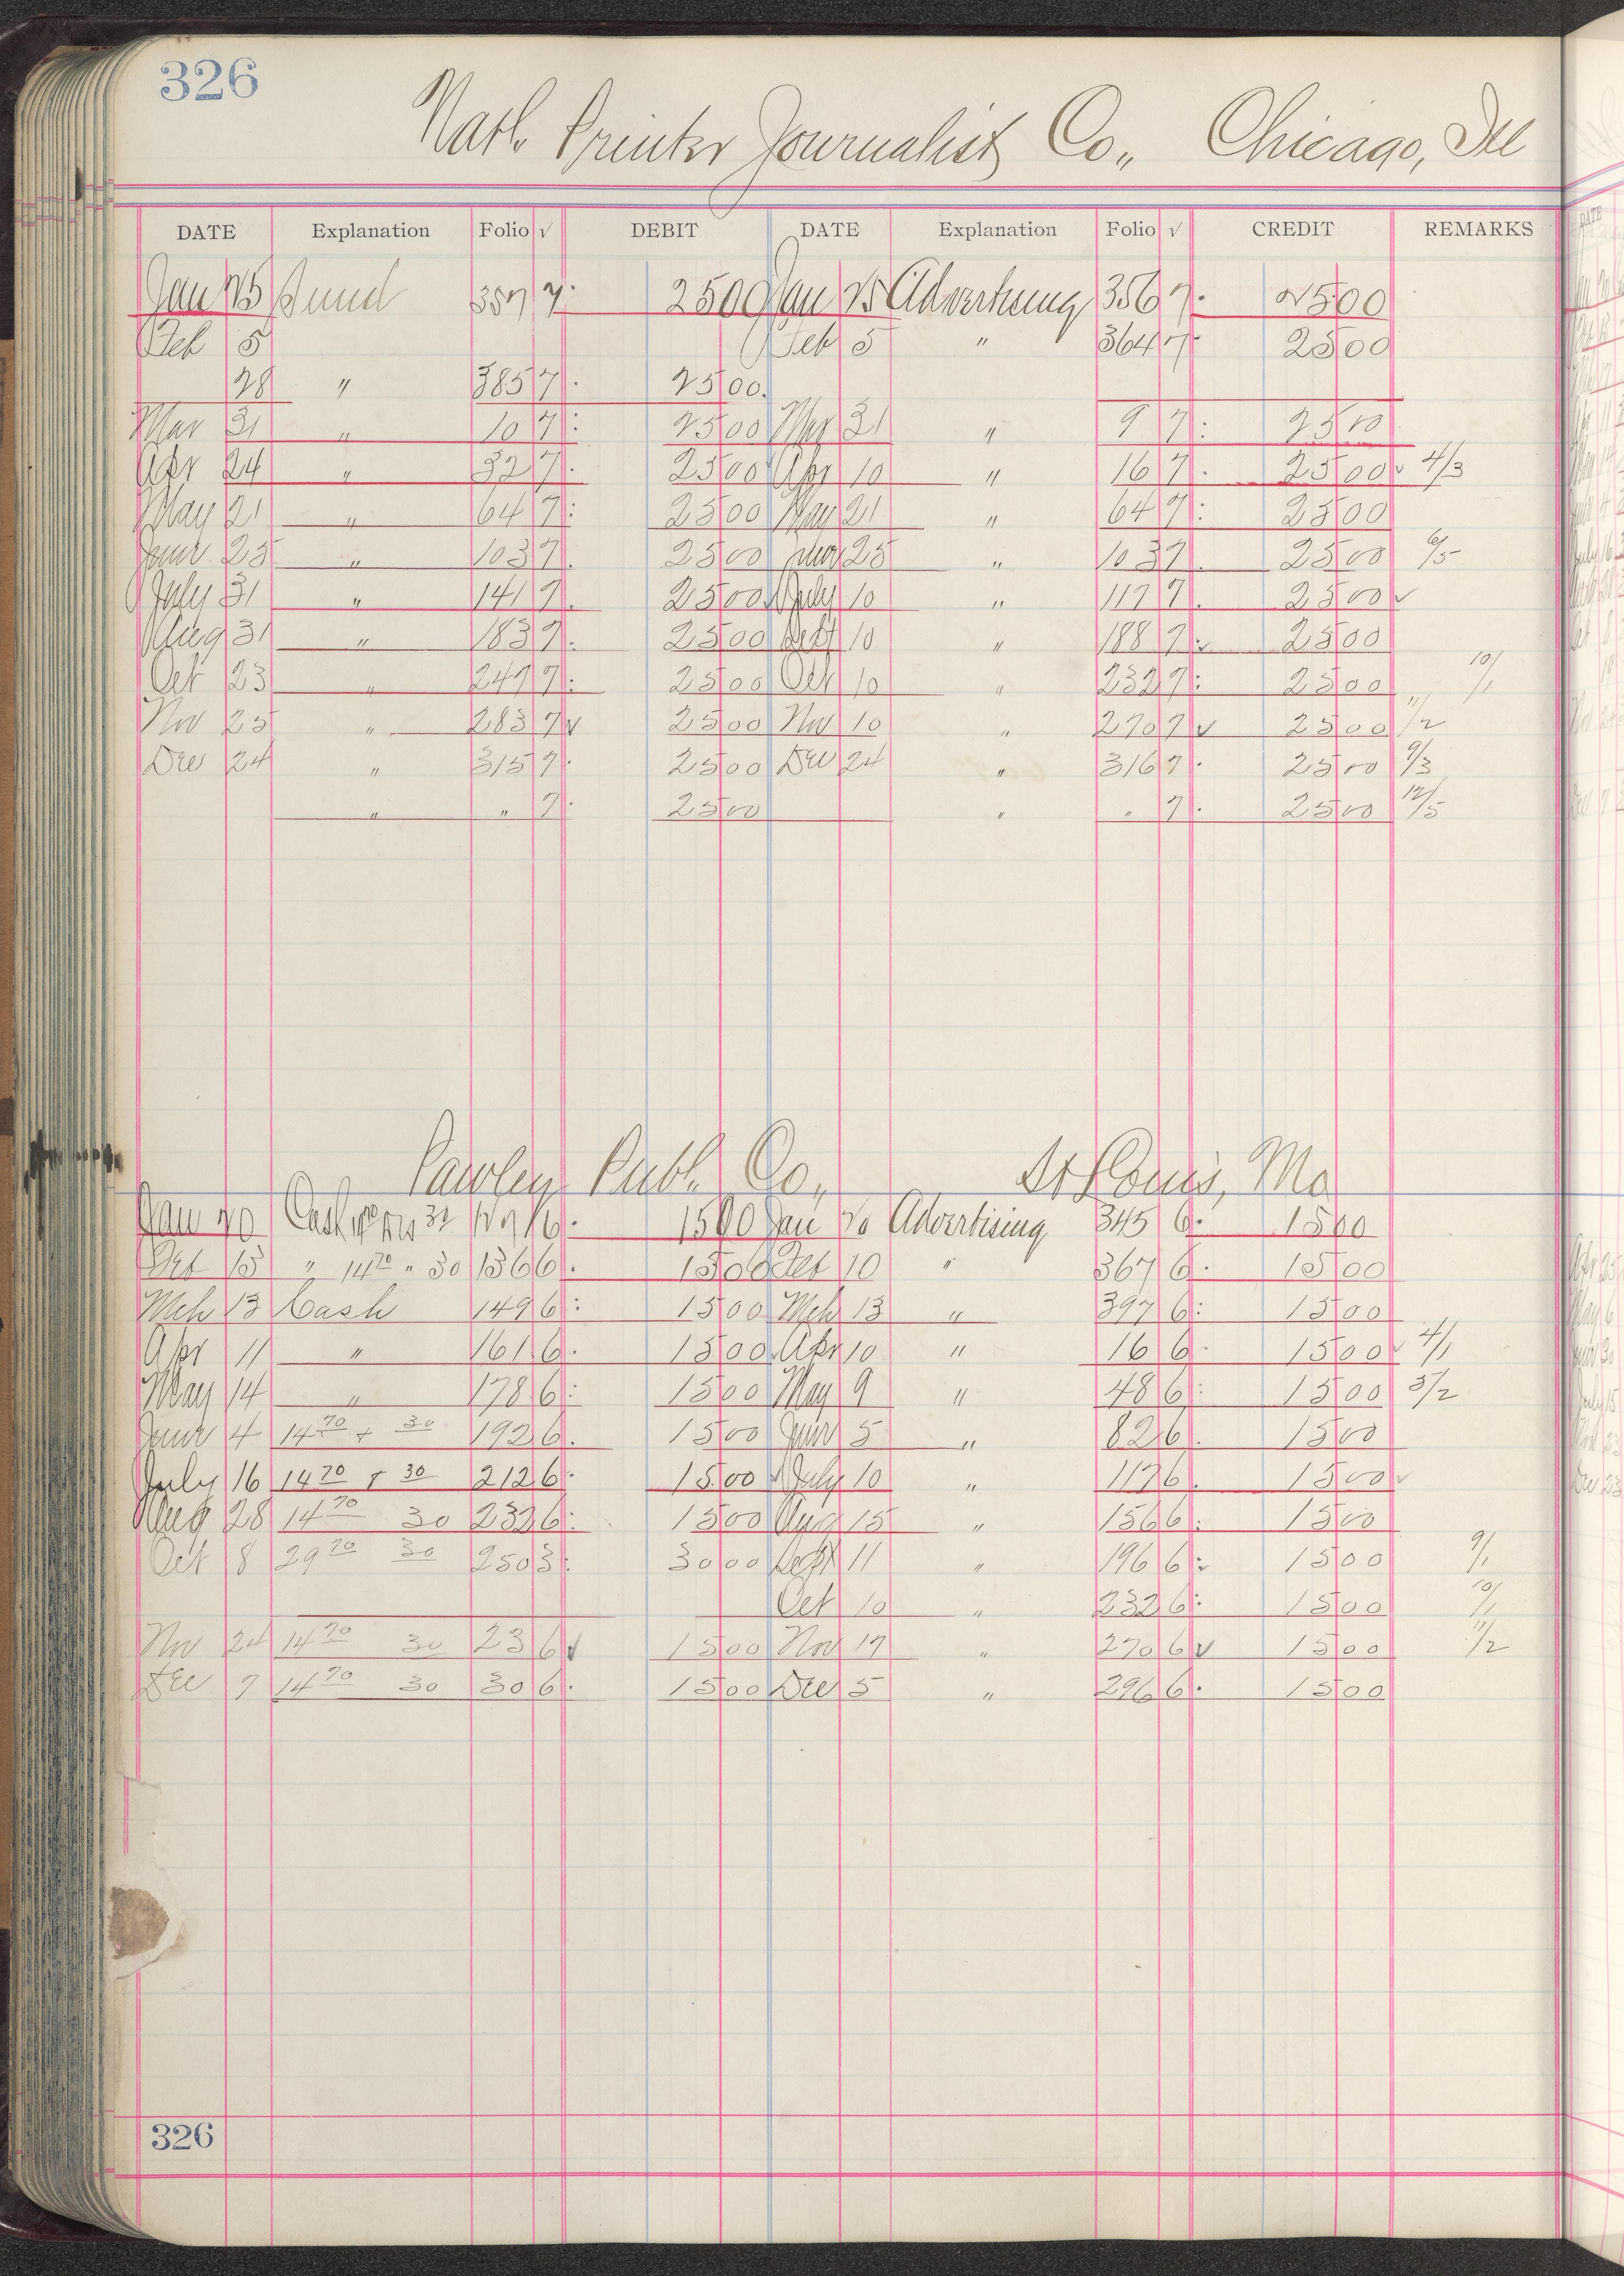 326
Natl. Printer Journalist Co., Chicago, Ill
DATE Explanation Folio √ DEBIT DATE Explanation Folio √ CREDIT REMARKS
Jan 25 357 7 25 00 Jan 25 Advertising 356 7 25 00
Feb 5 Feb 5 " 364 7 25 00
28 " 385 7 25 00
Mar 31 " 10 7 25 00 Mar 31 " 9 7 25 00
Apr 24 " 32 7 25 00 Apr 10 " 16 7 25 00 4/3
May 21 " 64 7 25 00 May 21 " 64 7 25 00
June 25 " 103 7 25 00 June 25 " 103 7 25 00 6/5
July 31 " 141 7 25 00 July 10 " 117 7 25 00 ✓
Aug 31 " 183 7 25 00 Sept 10 " 188 7 25 00
Oct 23 " 247 7 25 00 Oct 10 " 232 7 25 00 10/1
Nov 25 " 283 7 √ 25 00 Nov 10 " 270 7 √ 25 00 11/2
Dec 24 " 315 7 25 00 Dec 24 " 316 7 25 00 9/3
" " 7 25 00 " " 7 25 00 12/5
Pawley Publ. Co., St Louis, Mo
Jan 20 Cash 6 15 00 Jan 20 Advertising 345 6 15 00
Feb 13 " 14 70 " 30 136 6 15 00 Feb 10 " 367 6 15 00
Mch 13 Cash 149 6 15 00 Mch 13 " 397 6 15 00
Apr 11 " 161 6 15 00 Apr 10 " 16 6 15 00 4/1
May 14 " 178 6 15 00 May 9 " 48 6 15 00 5/2
June 4 14 70 + 30 192 6 15 00 June 5 " 82 6 15 00
July 16 14 70 + 30 212 6 15 00 July 10 " 117 6 15 00 ✓
Aug 28 14 70 30 232 6 15 00 Aug 15 " 156 6 15 00
Oct 8 29 70 30 250 3 30 00 Sept 11 " 196 6 15 00 9/1
Oct 10 " 232 6 15 00 10/1
Nov 24 14 70 30 23 6 √ 15 00 Nov 17 " 270 6 √ 15 00 11/2
Dec 7 14 70 30 30 6 15 00 Dec 5 " 296 6 15 00
326